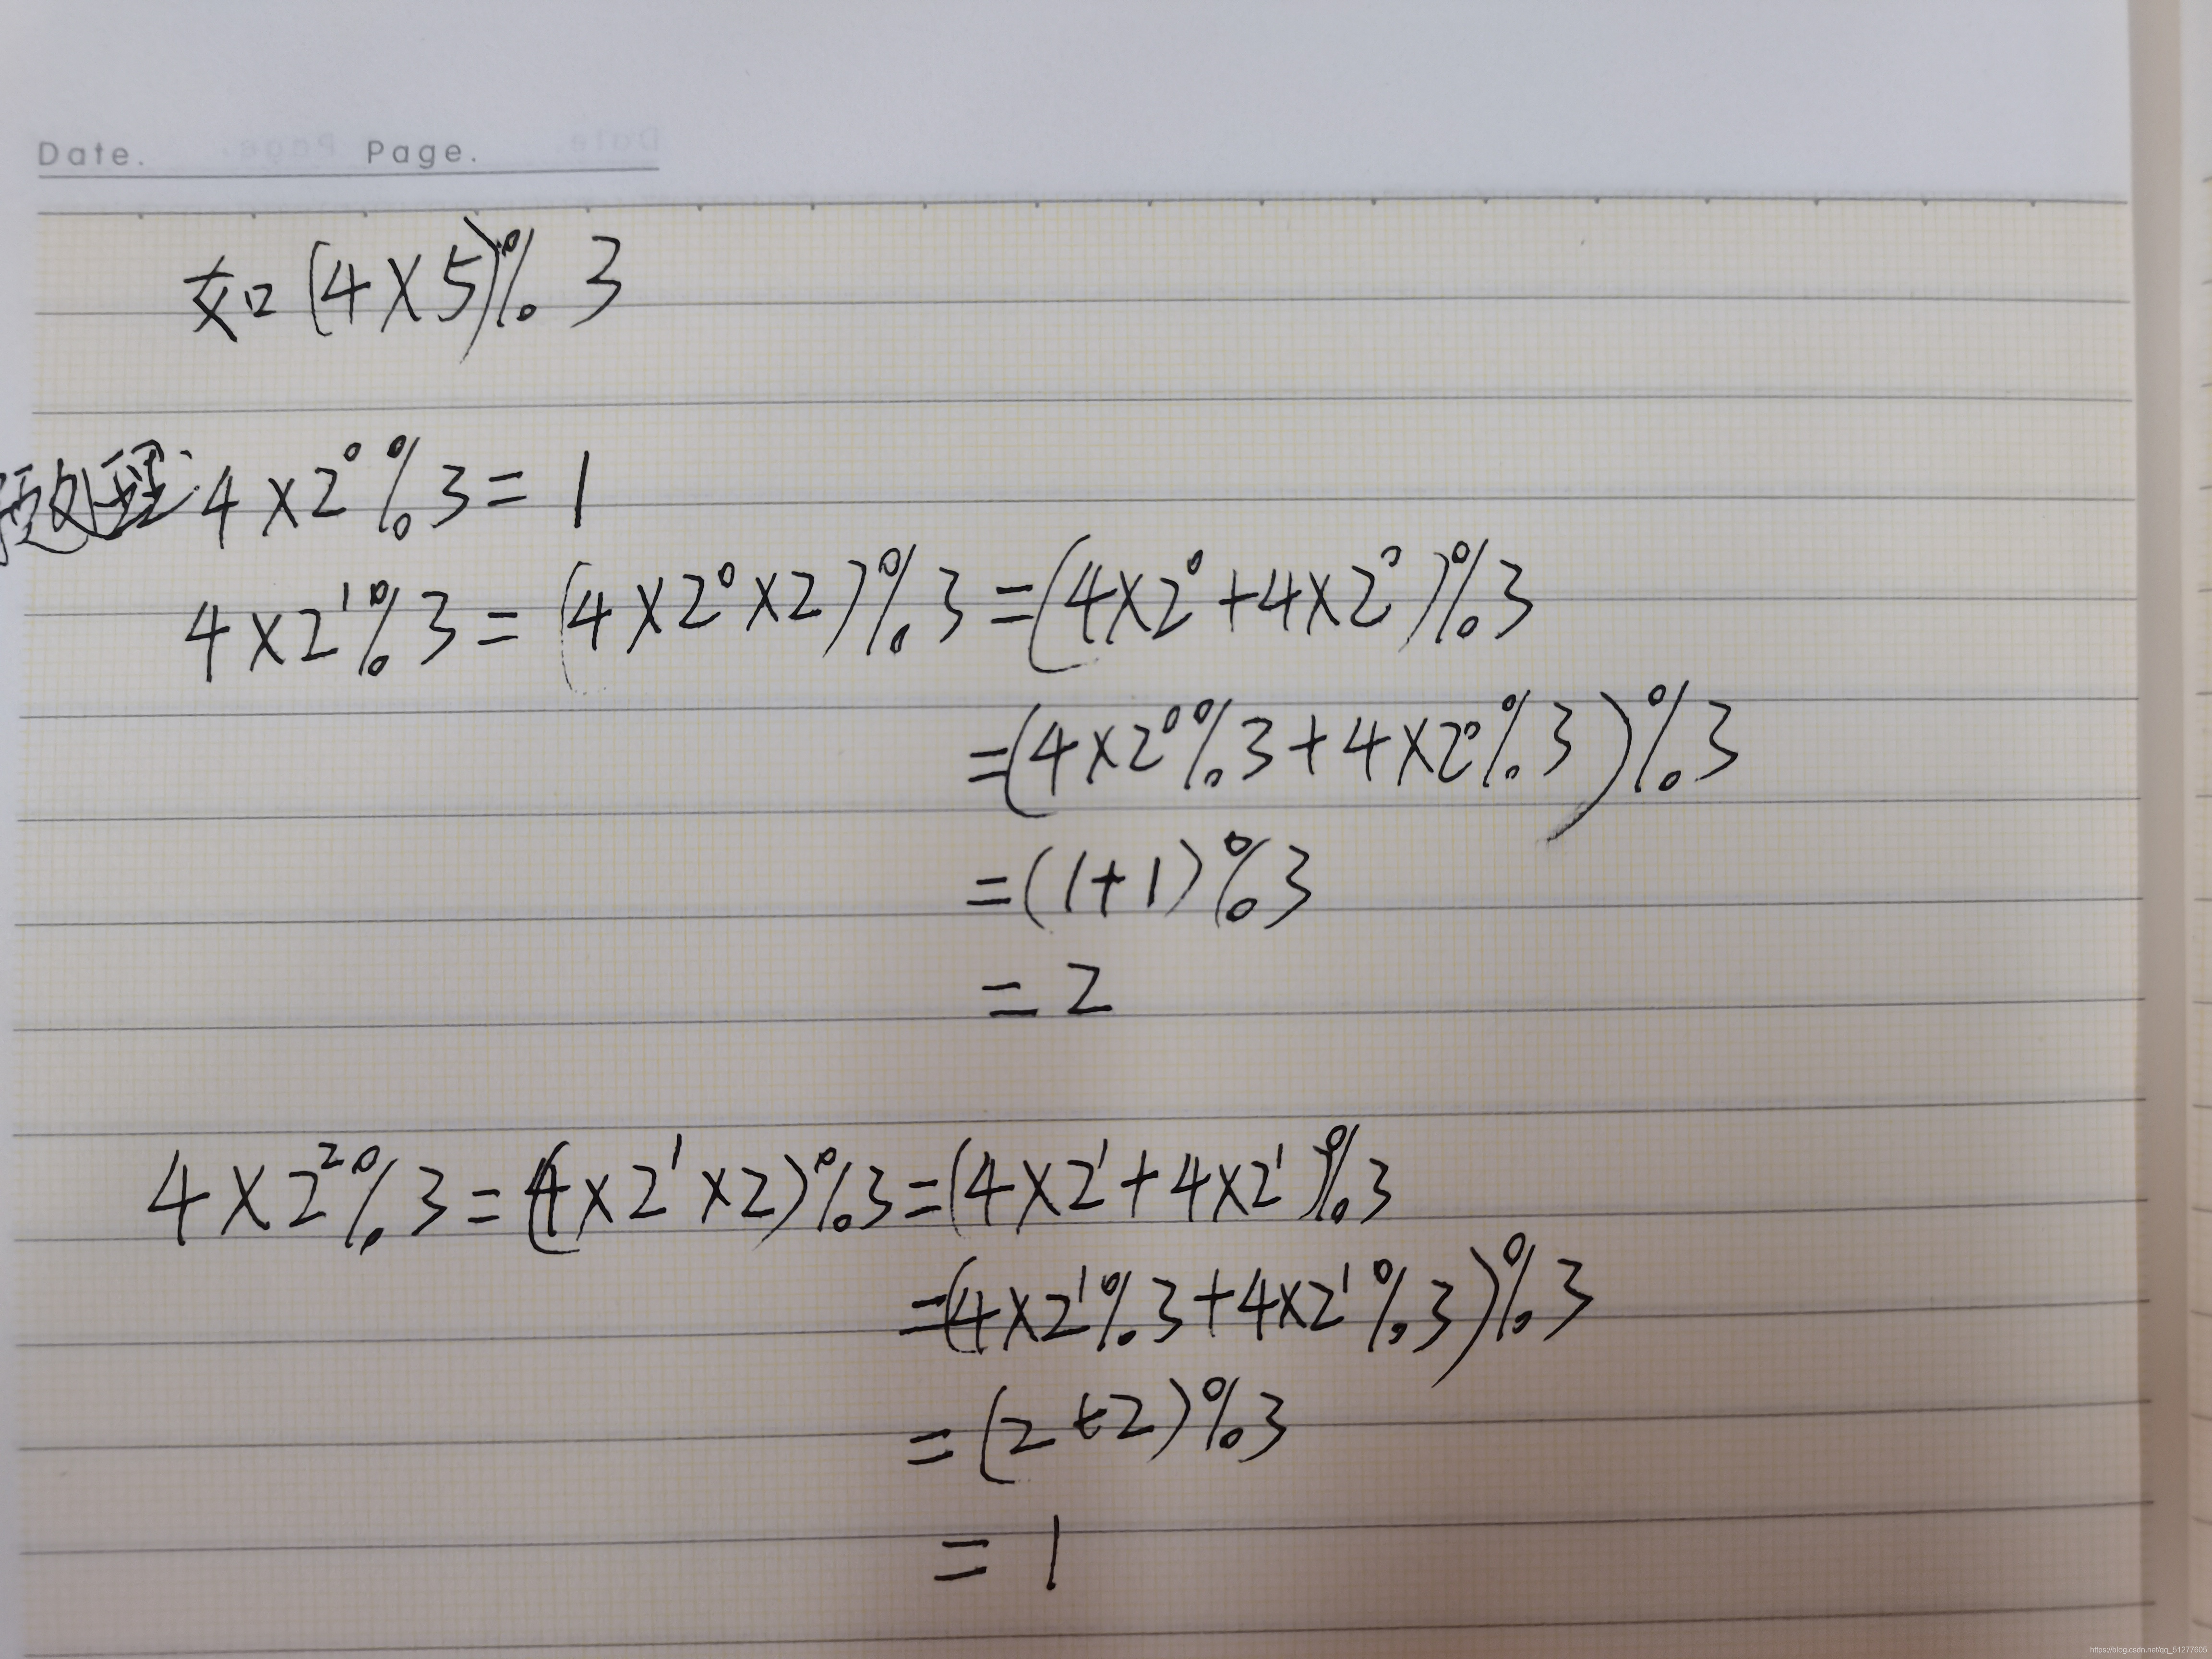 Date. Page.
如(4×5)%3
预处理: 4×2⁰%3=1
4×2¹%3=(4×2⁰×2)%3=(4×2⁰+4×2⁰)%3
=(4×2⁰%3+4×2⁰%3)%3
=(1+1)%3
=2
4×2²%3=(4×2¹×2)%3=(4×2¹+4×2¹)%3
=(4×2¹%3+4×2¹%3)%3
=(2+2)%3
=1
https://blog.csdn.net/qq_51277605